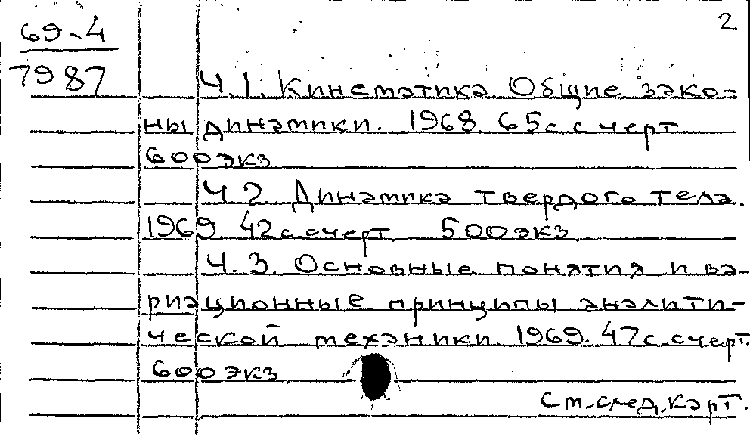 2
69-4
7987
Ч.1. Кинематика. Общие зако-
ны динамики. 1968. 65 с. с черт.
600 экз
Ч.2 Динамика твердого тела.
1969 42 с. с черт. 500 экз
Ч.3. Основные понятия и ва-
риационные принципы аналити-
ческой механики. 1969. 47 с. с черт.
600 экз
См. след. карт.